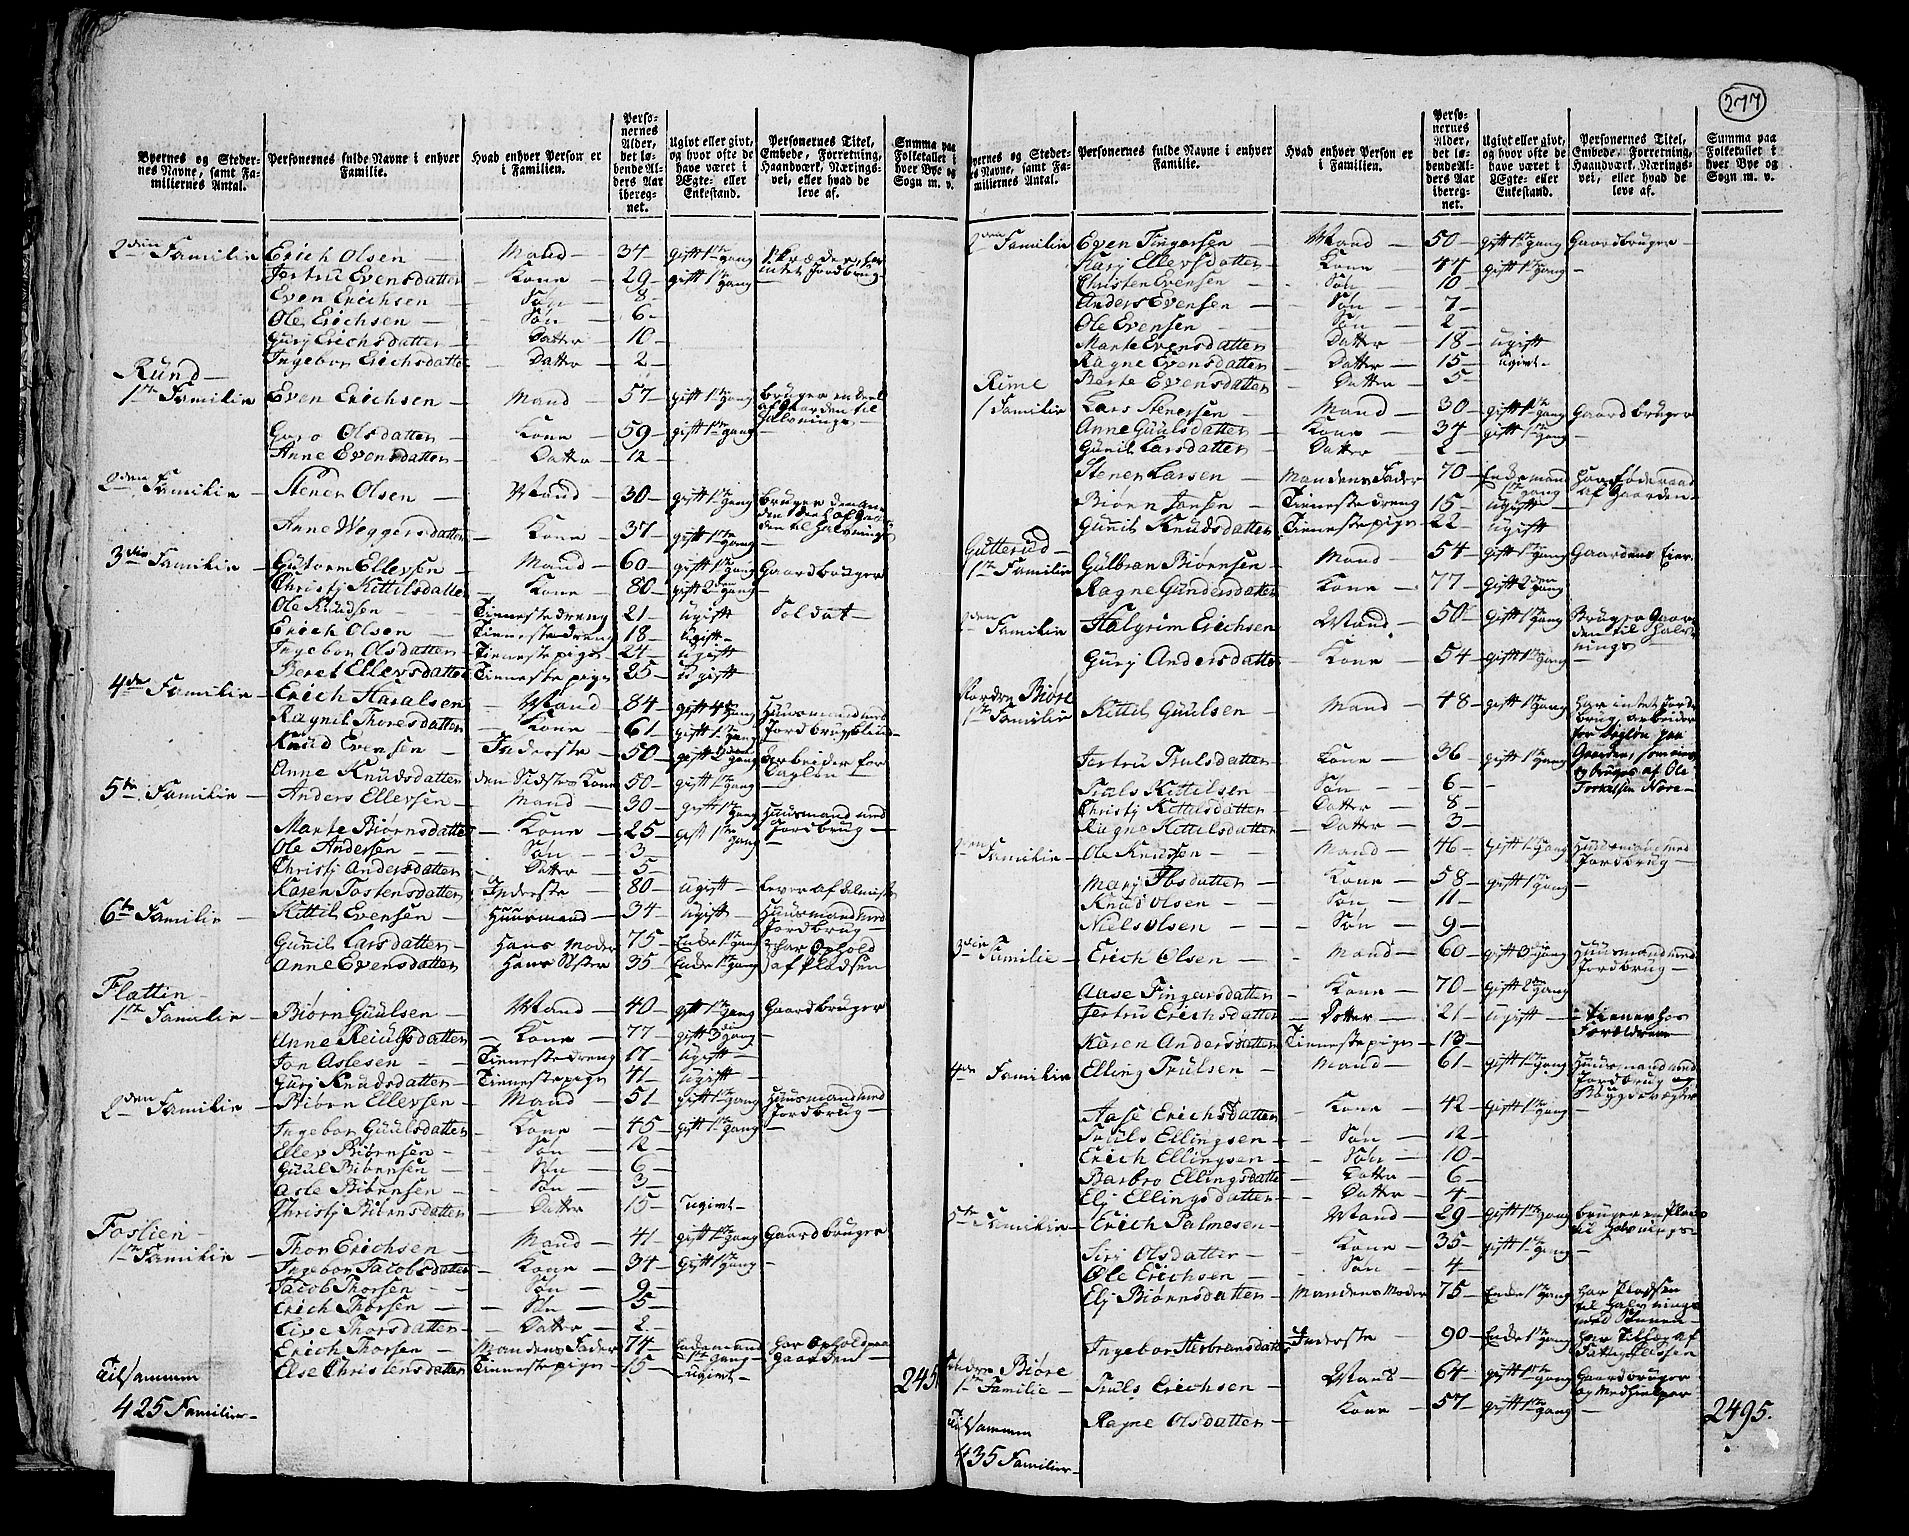 277
Byernes og Steder-nes Navne, samt Fa-miliernes Antal. Personernes fulde Navne i enhver Familie. Hvad enhver Person er i Familien. Perso-nernes Alder, det lø-bende Al-ders Aar iberegnet. Ugivt eller givt, og hvor ofte de have været i Ægte- eller Enkestand. Personernes Titel, Embede, Forretning, Haandværk, Nærings-vei, eller hvad de leve af. Summa paa Folketallet i hver Bye og Sogn m. v.
2den Familie Erich Olsen — Mand — 34 — gift 1te Gang
Jertru Evensdatter — Kone — 29 — gift 1te Gang
Even Erichsen — Søn — 8
Ole Erichsen — Søn — 6 —
Gurj Erichsdatter — Datter — 10
Ingebor Erichsdatter — Datter — 2 —
Rund —
1te Familie Even Erichsen — Mand — 57 — gift 1te Gang bruger en deel af Gaarden til Halvninge
Goro Olsdatter — Kone — 59 — gift 1te Gang
Anne Evensdatter — Datter — 12
2den Familie — Stener Olsen — Mand — 30 — gift 1te Gang
Anne Weggersdatter — Kone — 37 — gift 1te Gang
3die Familie — Gutorm Ellevsen — Mand — 60 — gift 1te Gang Gaardbruger
Christj Kittilsdatter — Kone — 80 — gift 2den Gang
Ole Knudsen — Tienestedreng 21 — ugift Soldat —
Erich Olsen — Tienestedreng 18 — ugift —
Ingebor Olsdatter — Tienestepige — 24 — ugift
Beret Ellevsdatter Tienestepige 25 — ugift
4de Familie — Erich Haralsen — Mand — 84 — gift 4de Gang Huusmand med Jordbrug, blind
Ragnil Thoresdatter — Kone — 61 — gift 1te Gang
Knud Evensen — Inderste — 50 — gift 2den Gang Arbeider for Dagløn —
Anne Knudsdatter den Sidstes Kone 50 — gift 1te Gang
5te Familie — Anders Ellevsen — Mand — 30 — gift 1te Gang Huusmand med Jordbrug —
Marte Biørnsdatter — Kone — 25 — gift 1te Gang
Ole Andersen — Søn — 3 —
Christj Andersdatter — Datter — 5 —
Karen Tostensdatter — Inderste — 80 — ugift — Lever af Almisse
6te Familie — Kittil Evensen — Huusmand — 34 — ugift Huusmand med Jordbrug
Gunil Larsdatter — Hans Moder 75 — Enke 1te Gang har Ophold af Pladsen
Anne Evensdatter — Hans Søster 35 — Enke 1te Gang
Flattin —
1te Familie — Biørn Guulsen — Mand — 40 — gift 1te Gang Gaardbruger
Anne Reiulfsdatter — Kone — 77 — gift 3die Gang
Jon Aslesen — Tienestedreng 17 — ugift —
Gurj Knudsdatter — Tienestepige — 41 — ugift —
2den Familie — Biørn Ellevsen — Mand — 51 — gift 1te Gang Huusmand med Jordbrug —
Ingebor Guulsdatter — Kone — 45 — gift 1te Gang
Ellev Biørnsen — Søn — 12 —
Guul Biørnsen — Søn — 6 —
Asle Biørnsen — Søn — 3 —
Christj Biørnsdatter — Datter — 15 — ugivt —
Foslien —
1te Familie — Thor Erichsen — Mand — 41 — gift 1te Gang Gaardbruger
Ingebor Jacobsdatter — Kone — 34 — gift 1te Gang
Jacob Thorsen — Søn — 9 —
Erich Thorsen — Søn — 5 —
Live Thorsdatter — Datter — 2 —
Erich Thorsen — Mandens Fader 74 — Enkemand 1te Gang — har Ophold paa Gaarden —
Else Christensdatter Tienestepige — 15 — ugivt — 245
Tilsammen
425 Familier —
Byernes og Steder-nes Navne, samt Fa-miliernes Antal. Personernes fulde Navne i enhver Familie. Hvad enhver Person er i Familien. Perso-nernes Alder, det lø-bende Al-ders Aar iberegnet. Ugivt eller givt, og hvor ofte de have været i Ægte- eller Enkestand. Personernes Titel, Embede, Forretning, Haandværk, Nærings-vei, eller hvad de leve af. Summa paa Folketallet i hver Bye og Sogn m. v.
2den Familie Even Fingarsen — Mand — 50 — gift 1te Gang Gaardbruger —
Karj Ellevsdatter — Kone — 47 — gift 1te Gang —
Christen Evensen — Søn — 10
Anders Evensen — Søn — 7 —
Ole Evensen — Søn — 2 —
Marte Evensdatter — Datter — 18 — ugift
Ragne Evensdatter — Datter — 15 — ugivt —
Berte Evensdatter — Datter — 5
Rime
1 Familie Lars Stenersen — Mand — 30 — gift 1te Gang Gaardbruger
Anne Guulsdatter — Kone — 34 — gift 1te Gang
Gunil Larsdatter — Datter — 2 —
Stener Larsen — Mandens Fader 70 — Enkemand 1te Gang har Føderaad af Gaarden —
Biørn Jonsen — Tienestedreng 15 — ugift —
Gunil Knudsdatter — Tienestepige — 22 — ugift
Gutterud —
1te Familie Gulbran Biørnsen — Mand — 54 — gift 1te Gang Gaardens Eier
Ragne Gundersdatter — Kone — 77 — gift 2den Gang
2den Familie — Halgrim Erichsen — Mand — 50 — gift 1te Gang Bruger Gaarden til Halvninge —
Gurj Andersdatter — Kone — 54 — gift 1te Gang —
Nordre Biøre
1te Familie Kittil Guulsen — Mand — 48 — gift 1te Gang har intet Jordbrug, arbeider for Dagløn paa Gaarden, som eies og bruges af Ole Torkilsen Nore —
Jertru Trulsdatter — Kone — 36 — gift 1te Gang
Truls Kittilsen — Søn — 6 —
Christj Kittilsdatter — Datter — 8 —
Ragne Kittilsdatter — Datter — 3 —
2den Familie — Ole Knudsen — Mand — 46 — gift 1te Gang Huusmand med Jordbrug —
Marj Ibsdatter — Kone — 58 — gift 1te Gang —
Knud Olsen — Søn — 11 —
Niels Olsen — Søn — 9 —
3die Familie — Erich Olsen — Mand — 60 gift 3die Gang Huusmand med Jordbrug —
Aase Fingarsdatter — Kone — 70 — gift 2den Gang
Jertru Erichsdatter — Datter — 21 — ugift — tiener hos Forældrene
Karen Andersdatter — Tienestepige — 13 —
4de Familie — Elling Trulsen — Mand — 61 — gift 1te Gang Huusmand med Jordbrug og Bøygdevægter
Aase Erichsdatter — Kone — 42 — gift 1te Gang
Truls Ellingsen — Søn — 12 —
Erich Ellingsen — Søn — 10 —
Barbro Ellingsdatter — Datter — 6 —
Elj Ellingsdatter — Datter — 4 —
5te Familie — Erich Palmesen — Mand — 29 — gift 1te Gang bruger en Plads til Halvninge —
Sirj Olsdatter — Kone — 35 — gift 1te Gang —
Ole Erichsen — Søn — 4 —
Elj Biørnsdatter — Mandens Moder 75 — Enke 1te Gang har Pladsen til Halvninge med Sønnen —
Ingebor Herbransdatter Inderste — 90 — Enke 1te Gang har Tillæg af Fattig Kassen
Søndre Biøre
1te Familie — Truls Erichsen — Mand — 64 — gift 1te Gang Gaardbruger og Medhielper
Ragne Olsdatter — Kone — 57 — gift 1te Gang — 2495.
Tilsammen
435 Familier —